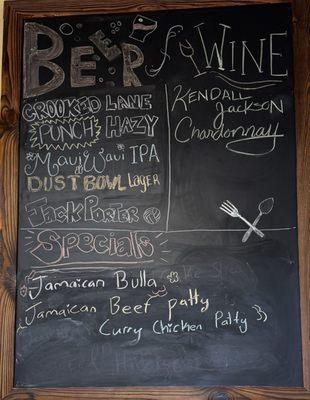 BEER & WINE
CROOKED LANE
PUNCH HAZY
Maui Waui IPA
DUST BOWL Lager
JACK PORTER
KENDALL
JACKSON
Chardonnay
Specials
Jamaican Bulla
Jamaican Beef patty
Curry Chicken Patty